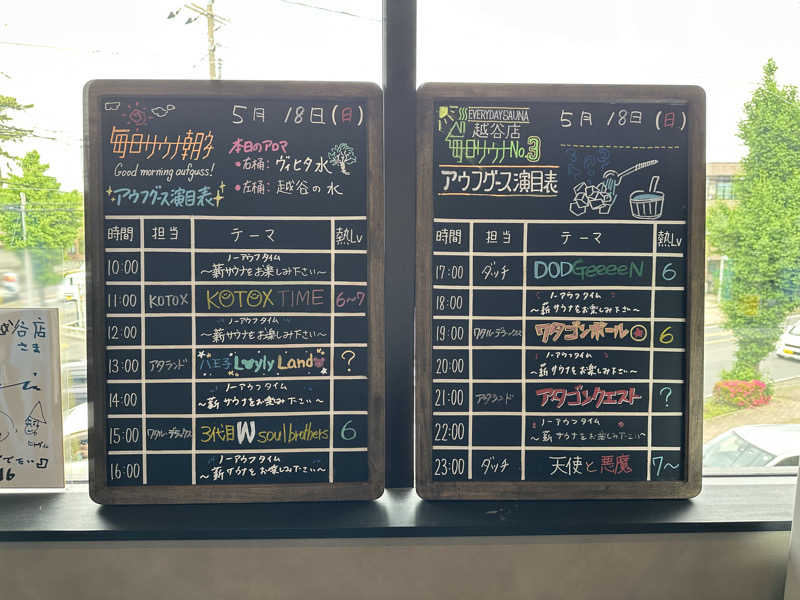 5月 18日(日)
毎日サウナ朝多
Good morning aufguss!
アウフグース演目表
本日のアロマ
・右桶: ヴィヒタ水
・左桶: 越谷の水
時間 担当 テーマ 熱Lv
10:00 ノーアウフタイム
～薪サウナをお楽しみ下さい～
11:00 KOTOX KOTOX TIME 6~7
12:00 ノーアウフタイム
～薪サウナをお楽しみ下さい～
13:00 アタランド 八王子 Loyly Land ?
14:00 ノーアウフタイム
～薪サウナをお楽しみ下さい～
15:00 ワタル・デラックス 3代目W soul brothers 6
16:00 ノーアウフタイム
～薪サウナをお楽しみ下さい～
EVERYDAYSAUNA
越谷店
毎日サウナNo.3
アウフグース演目表
5月 18日(日)
時間 担当 テーマ 熱Lv
17:00 ダッチ DODGeeeeN 6
18:00 ノーアウフタイム
～薪サウナをお楽しみ下さい～
19:00 ワタル・デラックス ワタゴンボール 6
20:00 ノーアウフタイム
～薪サウナをお楽しみ下さい～
21:00 アタランド アタゴンクエスト ?
22:00 ノーアウフタイム
～薪サウナをお楽しみ下さい～
23:00 ダッチ 天使と悪魔 7～
谷店
さま